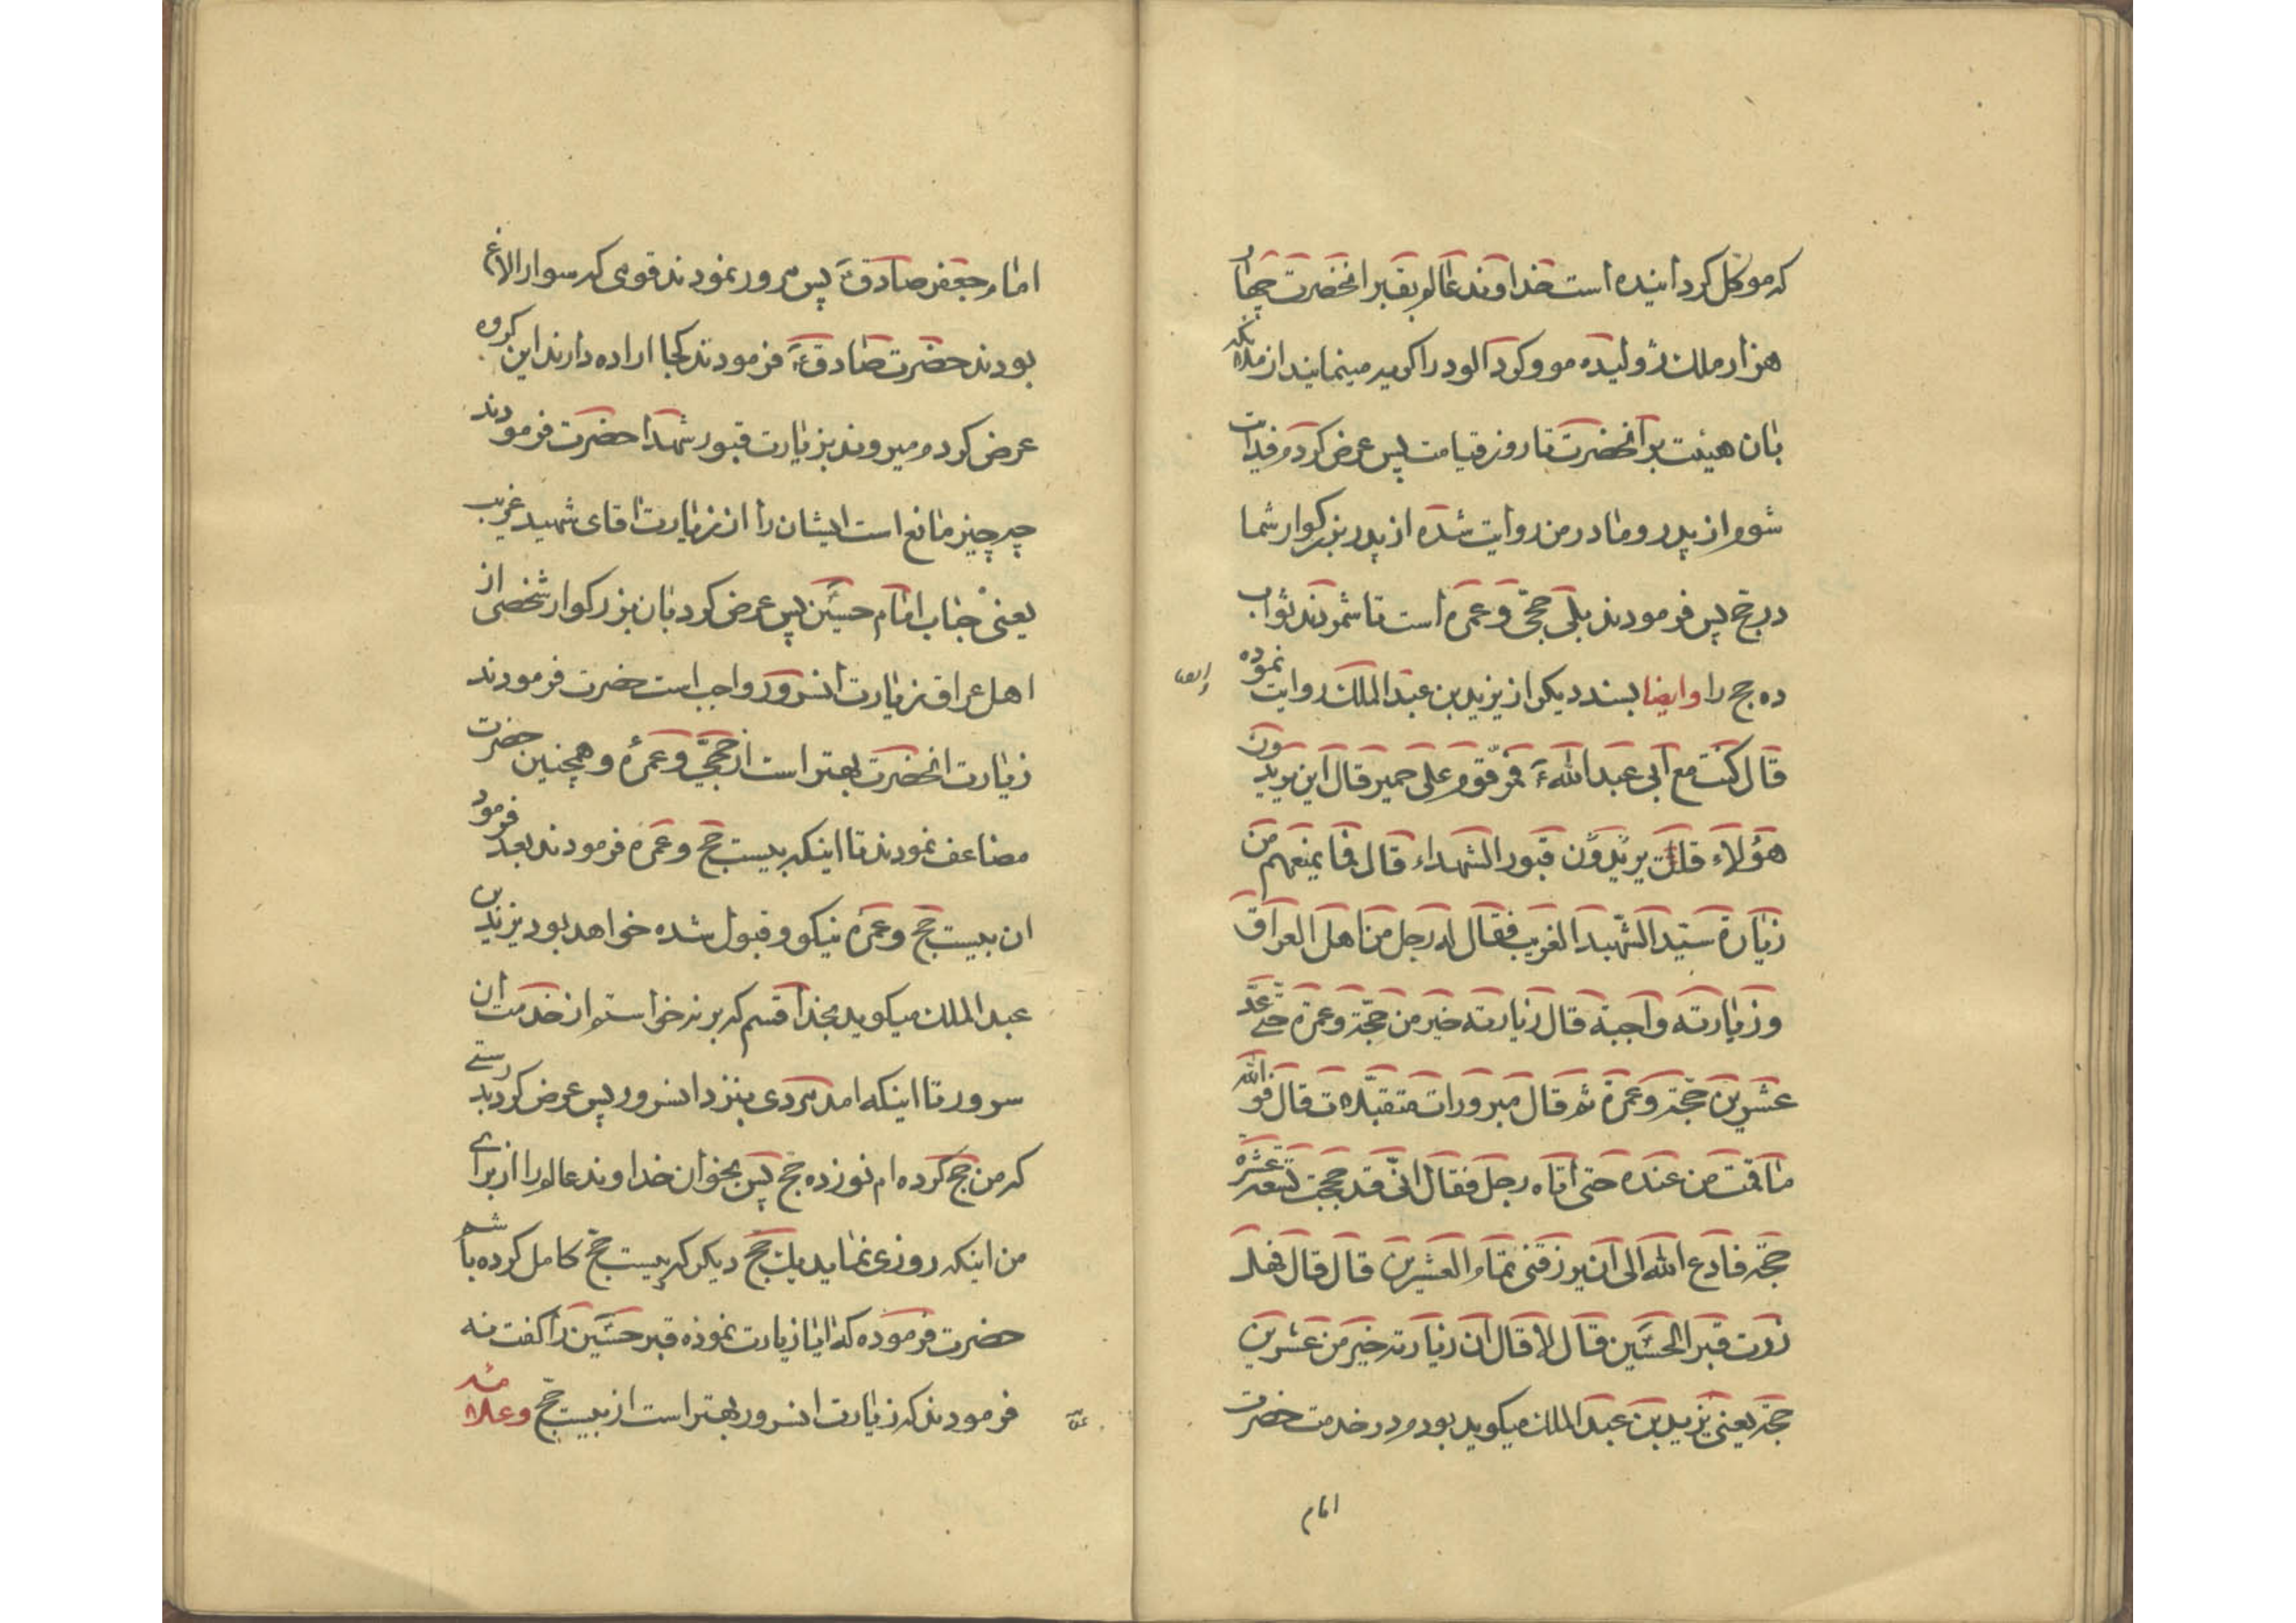 که موکل کردانیده است خداوند عالم بقبر انحضرت چهار
هزار ملک ژولیده مو و کرد الود را کریه مینمایند از ملائکه
بان هیئت بر آنحضرت تا روز قیامت پس عرض کردم فدایت
شوم از پدر و مادر من روایت شده از پدر بزرکوار شما
در حج پس فرمودند بلی حجّی و عمره است تا شمردند ثواب
ده حج را وایضا بسند دیکر از یزید بن عبد الملک روایت نموده
قال کنت مع ابی عبد الله ع فمرّ قوم علی حمیر قال این یریدون
هؤلاء قلت یریدون قبور الشهداء قال فما یمنعهم من
زیارة سیّد الشّهید الغریب فقال له رجل من اهل العراق
وزیارته واجبة قال زیارته خیر من حجّة وعمرة حتّی عدّ
عشرین حجّة وعمرة ثم قال مبرورات متقبّلات قال فوالله
ما قمت من عنده حتی اتاه رجل فقال انّی قد حججت تسعة عشرة
حجّة فادع الله الی ان یرزقنی تمام العشرین قال قال فهل
زرت قبر الحسین قال لا قال ان زیارته خیر من عشرین
حجّة یعنی یزید بن عبد الملک میکوید بودم در خدمت حضرت
امام
امام جعفر صادق ع پس مرور نمودند قومی که سوار الاغ
بودند حضرت صادق ع فرمودند کجا اراده دارند این کروه
عرض کردم میروند بزیارت قبور شهدا حضرت فرمودند
چه چیز مانع است ایشان را از زیارت اقای شهید غریب
یعنی جناب امام حسین پس عرض کرد بان بزرکوار شخصی از
اهل عراق زیارت انسرور واجب است حضرت فرمودند
زیارت انحضرت بهتر است از حجّی و عمرهٔ و همچنین حضرت
مضاعف نمودند تا اینکه بیست حج و عمره فرمودند بعد فرمود
ان بیست حج و عمره نیکو و قبول شده خواهد بود یزید بن
عبد الملک میکوید بخدا قسم که برنخواستم از خدمت ان
سرور تا اینکه امد مردی بنزد انسرور پس عرض کرد بدرستی
که من حج کرده ام نوزده حج پس بخوان خداوند عالم را از برای
من اینکه روزی نماید یک حج دیکر که بیست حج کامل کرده باشم
حضرت فرموده که ایا زیارت نموده قبر حسین را کفت نه
فرمودند که زیارت انسرور بهتر است از بیست حجّ وعلامه